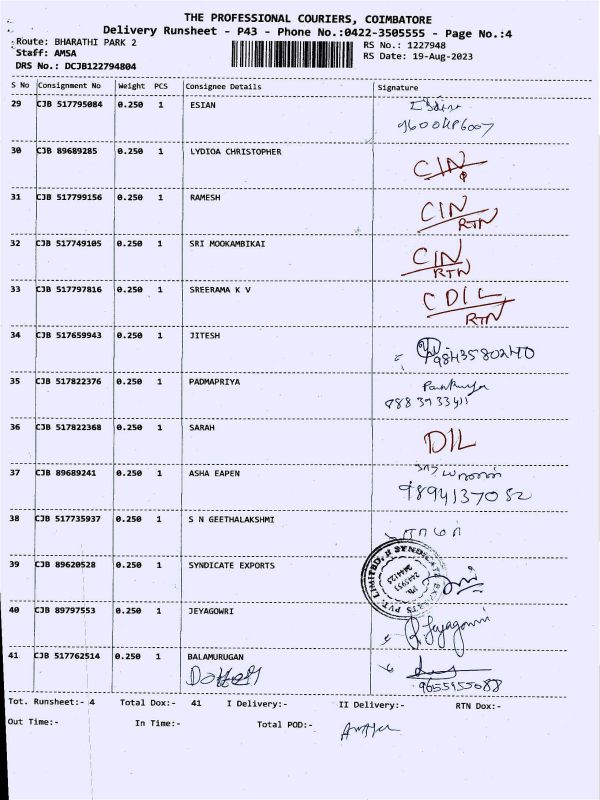 THE PROFESSIONAL COURIERS, COIMBATORE
Delivery Runsheet - P43 - Phone No.:0422-3505555 - Page No.:4
Route: BHARATHI PARK 2 RS No.: 1227948
Staff: AMSA RS Date: 19-Aug-2023
DRS No.: DCJB122794804
S No Consignment No Weight PCS Consignee Details Signature
29 CJB 517795084 0.250 1 ESIAN
30 CJB 89689285 0.250 1 LYDIOA CHRISTOPHER CIN
31 CJB 517799156 0.250 1 RAMESH CIN
RTN
32 CJB 517749105 0.250 1 SRI MOOKAMBIKAI CIN
RTN
33 CJB 517797816 0.250 1 SREERAMA K V CDIL
RTN
34 CJB 517659943 0.250 1 JITESH
9843580240
35 CJB 517822376 0.250 1 PADMAPRIYA
36 CJB 517822368 0.250 1 SARAH DIL
37 CJB 89689241 0.250 1 ASHA EAPEN
9894137052
38 CJB 517735937 0.250 1 S N GEETHALAKSHMI
39 CJB 89620528 0.250 1 SYNDICATE EXPORTS
SYNDICATE EXPORTS PVT. LIMITED.
40 CJB 89797553 0.250 1 JEYAGOWRI
R. Jeyagowri
41 CJB 517762514 0.250 1 BALAMURUGAN
9655155088
Tot. Runsheet:- 4 Total Dox:- 41 I Delivery:- II Delivery:- RTN Dox:-
Out Time:- In Time:- Total POD:-